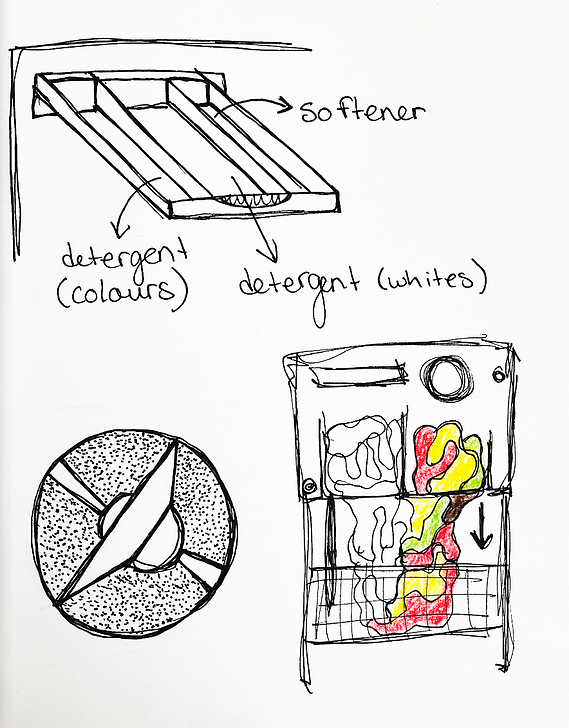 softener
detergent
(colours)
detergent (whites)